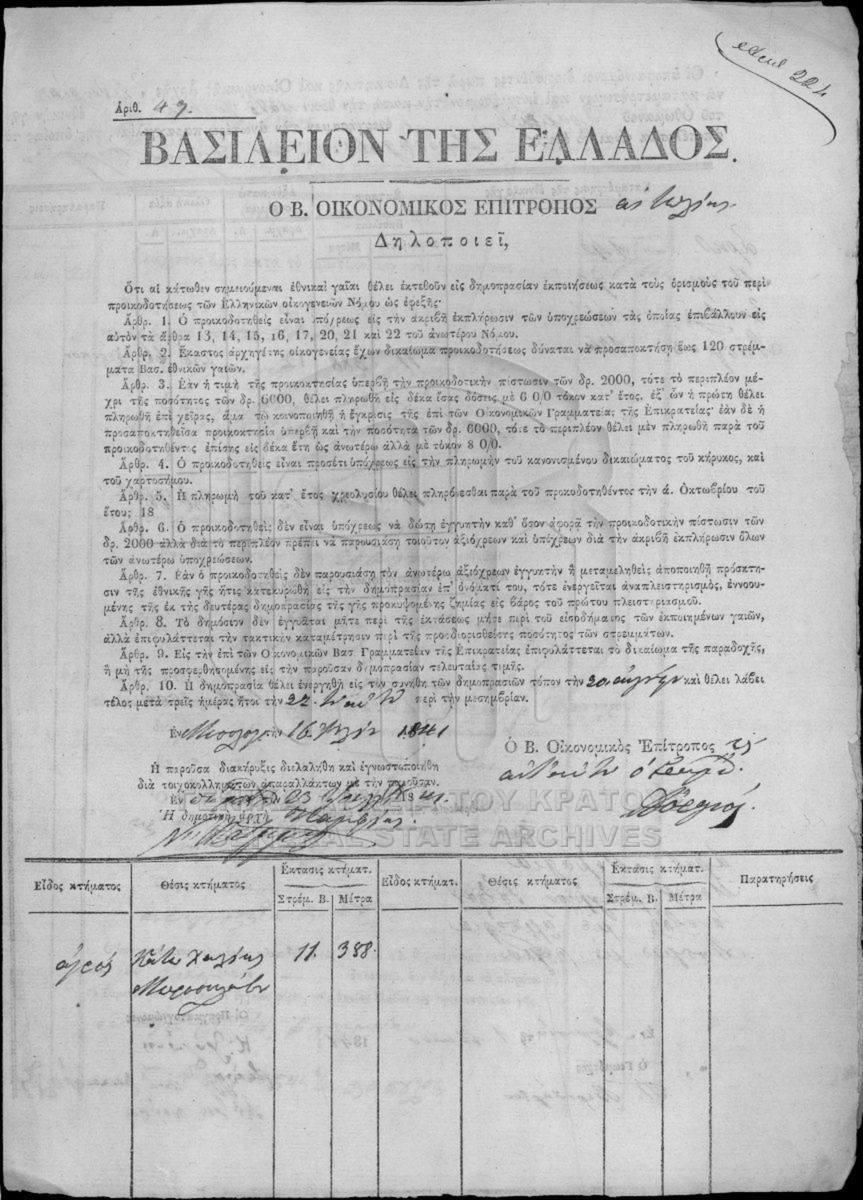 224
Ἀριθ. 49.
ΒΑΣΙΛΕΙΟΝ ΤΗΣ ΕΛΛΑΔΟΣ.
Ο Β. ΟΙΚΟΝΟΜΙΚΟΣ ΕΠΙΤΡΟΠΟΣ
Δηλοποιεῖ,
Ὅτι αἱ κάτωθεν σημειούμεναι ἐθνικαὶ γαῖαι θέλει ἐκτεθοῦν εἰς δημοπρασίαν ἐκποιήσεως κατὰ τοὺς ὁρισμοὺς τοῦ περὶ
προικοδοτήσεως τῶν Ἑλληνικῶν οἰκογενειῶν Νόμου ὡς ἐφεξῆς·
Ἄρθρ. 1. Ὁ προικοδοτηθεὶς εἶναι ὑπόχρεως εἰς τὴν ἀκριβῆ ἐκπλήρωσιν τῶν ὑποχρεώσεων τὰς ὁποίας ἐπιβάλλουν εἰς
αὐτὸν τὰ ἄρθρα 13, 14, 15, 16, 17, 20, 21 καὶ 22 τοῦ ἀνωτέρω Νόμου.
Ἄρθρ. 2. Ἕκαστος ἀρχηγέτης οἰκογενείας ἔχων δικαίωμα προικοδοτήσεως δύναται νὰ προσαποκτήσῃ ἕως 120 στρέμ-
ματα Βασ. ἐθνικῶν γαιῶν.
Ἄρθρ. 3. Ἐὰν ἡ τιμὴ τῆς προικοκτησίας ὑπερβῇ τὴν προικοδοτικὴν πίστωσιν τῶν δρ. 2000, τότε τὸ περιπλέον μέ-
χρι τῆς ποσότητος τῶν δρ. 6000, θέλει πληρωθῆ εἰς δέκα ἴσας δόσεις μὲ 6 0/0 τόκον κατ' ἔτος, ἐξ ὧν ἡ πρώτη θέλει
πληρωθῆ ἐπὶ χεῖρας, ἅμα τῷ κοινοποιηθῇ ἡ ἔγκρισις τῆς ἐπὶ τῶν Οἰκονομικῶν Γραμματείας τῆς Ἐπικρατείας· ἐὰν δὲ ἡ
προσαποκτηθεῖσα προικοκτησία ὑπερβῇ καὶ τὴν ποσότητα τῶν δρ. 6000, τότε τὸ περιπλέον θέλει μὲν πληρωθῆ παρὰ τοῦ
προικοδοτηθέντος ἐπίσης εἰς δέκα ἔτη ὡς ἀνωτέρω ἀλλὰ μὲ τόκον 8 0/0.
Ἄρθρ. 4. Ὁ προικοδοτηθεὶς εἶναι προσέτι ὑπόχρεως εἰς τὴν πληρωμὴν τοῦ κανονισμένου δικαιώματος τοῦ κήρυκος, καὶ
τοῦ χαρτοσήμου.
Ἄρθρ. 5. Ἡ πληρωμὴ τοῦ κατ' ἔτος χρεολυσίου θέλει πληρόνεσθαι παρὰ τοῦ προικοδοτηθέντος τὴν ά. Ὀκτωβρίου τοῦ
ἔτους 18
Ἄρθρ. 6. Ὁ προικοδοτηθεὶς δὲν εἶναι ὑπόχρεως νὰ δώσῃ ἐγγυητὴν καθ' ὅσον ἀφορᾷ τὴν προικοδοτικὴν πίστωσιν τῶν
δρ. 2000 ἀλλὰ διὰ τὸ περιπλέον πρέπει νὰ παρουσιάσῃ τοιοῦτον ἀξιόχρεων καὶ ὑπόχρεων διὰ τὴν ἀκριβῆ ἐκπλήρωσιν ὅλων
τῶν ἀνωτέρω ὑποχρεώσεων.
Ἄρθρ. 7. Ἐὰν ὁ προικοδοτηθεὶς δὲν παρουσιάσῃ τὸν ἀνωτέρω ἀξιόχρεων ἐγγυητὴν ἢ μεταμεληθεὶς ἀποποιηθῇ πρόσκτη-
σιν τῆς ἐθνικῆς γῆς ἥτις κατεκυρώθη εἰς τὴν δημοπρασίαν ἐπ' ὀνόματί του, τότε ἐνεργεῖται ἀναπλειστηρισμὸς, ἐννοου-
μένης τῆς ἐκ τῆς δευτέρας δημοπρασίας τῆς γῆς προκυψομένης ζημίας εἰς βάρος τοῦ πρώτου πλειστηριασμοῦ.
Ἄρθρ. 8. Τὸ δημόσιον δὲν ἐγγυᾶται μήτε περὶ τῆς ἐκτάσεως μήτε περὶ τοῦ εἰσοδήματος τῶν ἐκποιημένων γαιῶν,
ἀλλὰ ἐπιφυλάττεται τὴν τακτικὴν καταμέτρησιν περὶ τῆς προσδιορισθείσης ποσότητος τῶν στρεμμάτων.
Ἄρθρ. 9. Εἰς τὴν ἐπὶ τῶν Οἰκονομικῶν Βασ. Γραμματείαν τῆς Ἐπικρατείας ἐπιφυλάττεται τὸ δικαίωμα τῆς παραδοχῆς,
ἢ μὴ τῆς προσφερθησομένης εἰς τὴν παροῦσαν δημοπρασίαν τελευταίας τιμῆς.
Ἄρθρ. 10. Ἡ δημοπρασία θέλει ἐνεργηθῆ εἰς τὸν συνήθη τῶν δημοπρασιῶν τόπον τὴν 20 καὶ θέλει λάβει
τέλος μετὰ τρεῖς ἡμέρας ἤτοι τὴν 22 περὶ τὴν μεσημβρίαν.
Ἐν τὴν 16 1841
Ὁ Β. Οἰκονομικὸς Ἐπίτροπος
Ἡ παροῦσα διακήρυξις διελαλήθη καὶ ἐγνωστοποιήθη
διὰ τοιχοκολλημάτων ἀπαραλλάκτων μὲ τὴν παροῦσαν.
Ἐν 23 184
Ἡ δημοτικὴ ἀρχὴ
ΤΟΥ ΚΡΑΤΟΥΣ
GENERAL STATE ARCHIVES
Εἶδος κτήματος Θέσις κτήματος Ἔκτασις κτήματ. Εἶδος κτήματ. Θέσις κτήματος Ἔκτασις κτήματ. Παρατηρήσεις
Στρέμ. Β. Μέτρα Στρέμ. Β. Μέτρα
ἀγρός Κάτω 11. 388.